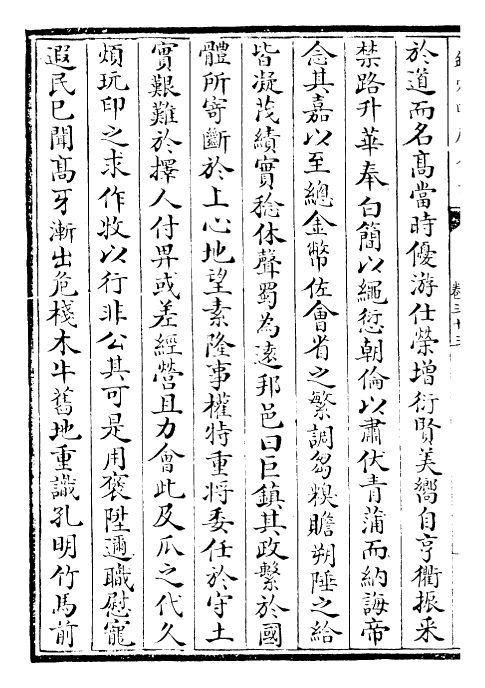 於道而名髙當時優游仕榮增衍賢美嚮自亨衢振采
禁路升華奉白簡以繩愆朝倫以肅伏青蒲而納誨帝
念其嘉以至總金幣佐會省之繁調芻糗贍朔陲之給
皆凝茂績實稔休聲蜀為逺邦邑曰巨鎮其政繫於國
體所寄斷於上心地望素隆事權特重將委任於守土
實艱難於擇人付畀或差經營且力會此及瓜之代久
煩玩印之求作牧以行非公其可是用褒陞邇職慰寵
遐民已聞髙牙漸出危棧木牛舊地重識孔明竹馬前
卷三十三